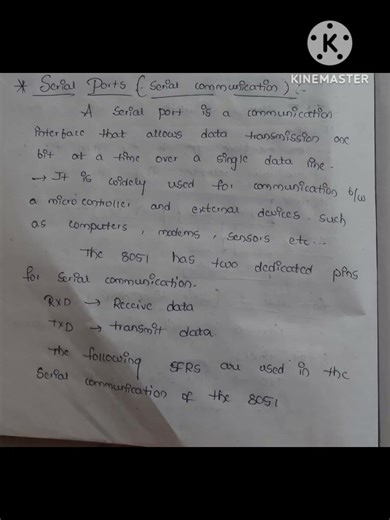 KINEMASTER
* Serial Ports (: Serial communication) :-
A serial port is a communication
interface that allows data transmission one
bit at a time over a single data line.
→ It is widely used for communication b/w
a microcontroller and external devices such
as computers, modems, sensors etc...
The 8051 has two dedicated pins
for serial communication.
RXD → Receive data
TXD → transmit data
The following SFRS are used in the
Serial communication of the 8051